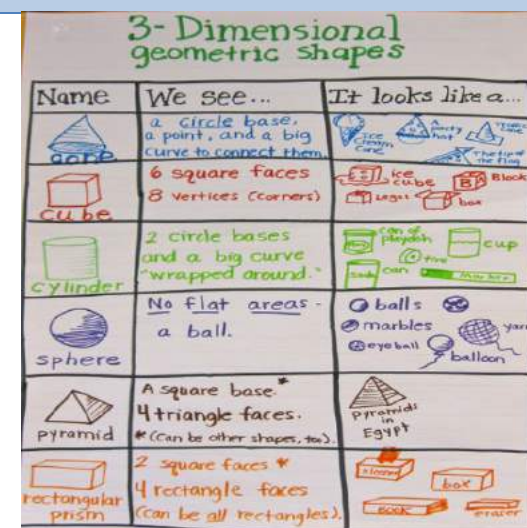 3-Dimensional
geometric shapes
Name
We see...
It looks like a...
cone
a circle base,
a point, and a big
curve to connect them.
Ice
Cream
Cone
A
party
hat
The tip of
the flag
cube
6 square faces
8 vertices (corners)
ice
cube
Block
box
cylinder
2 circle bases
and a big curve
"wrapped around."
can of
playdoh
cup
tire
soda
can
Marker
sphere
No flat areas -
a ball.
balls
marbles
yarn
eyeball
balloon
pyramid
A square base.*
4 triangle faces.
*(can be other shapes, too).
Pyramids
in
Egypt
rectangular
prism
2 square faces *
4 rectangle faces
(can be all rectangles).
box
Book
eraser